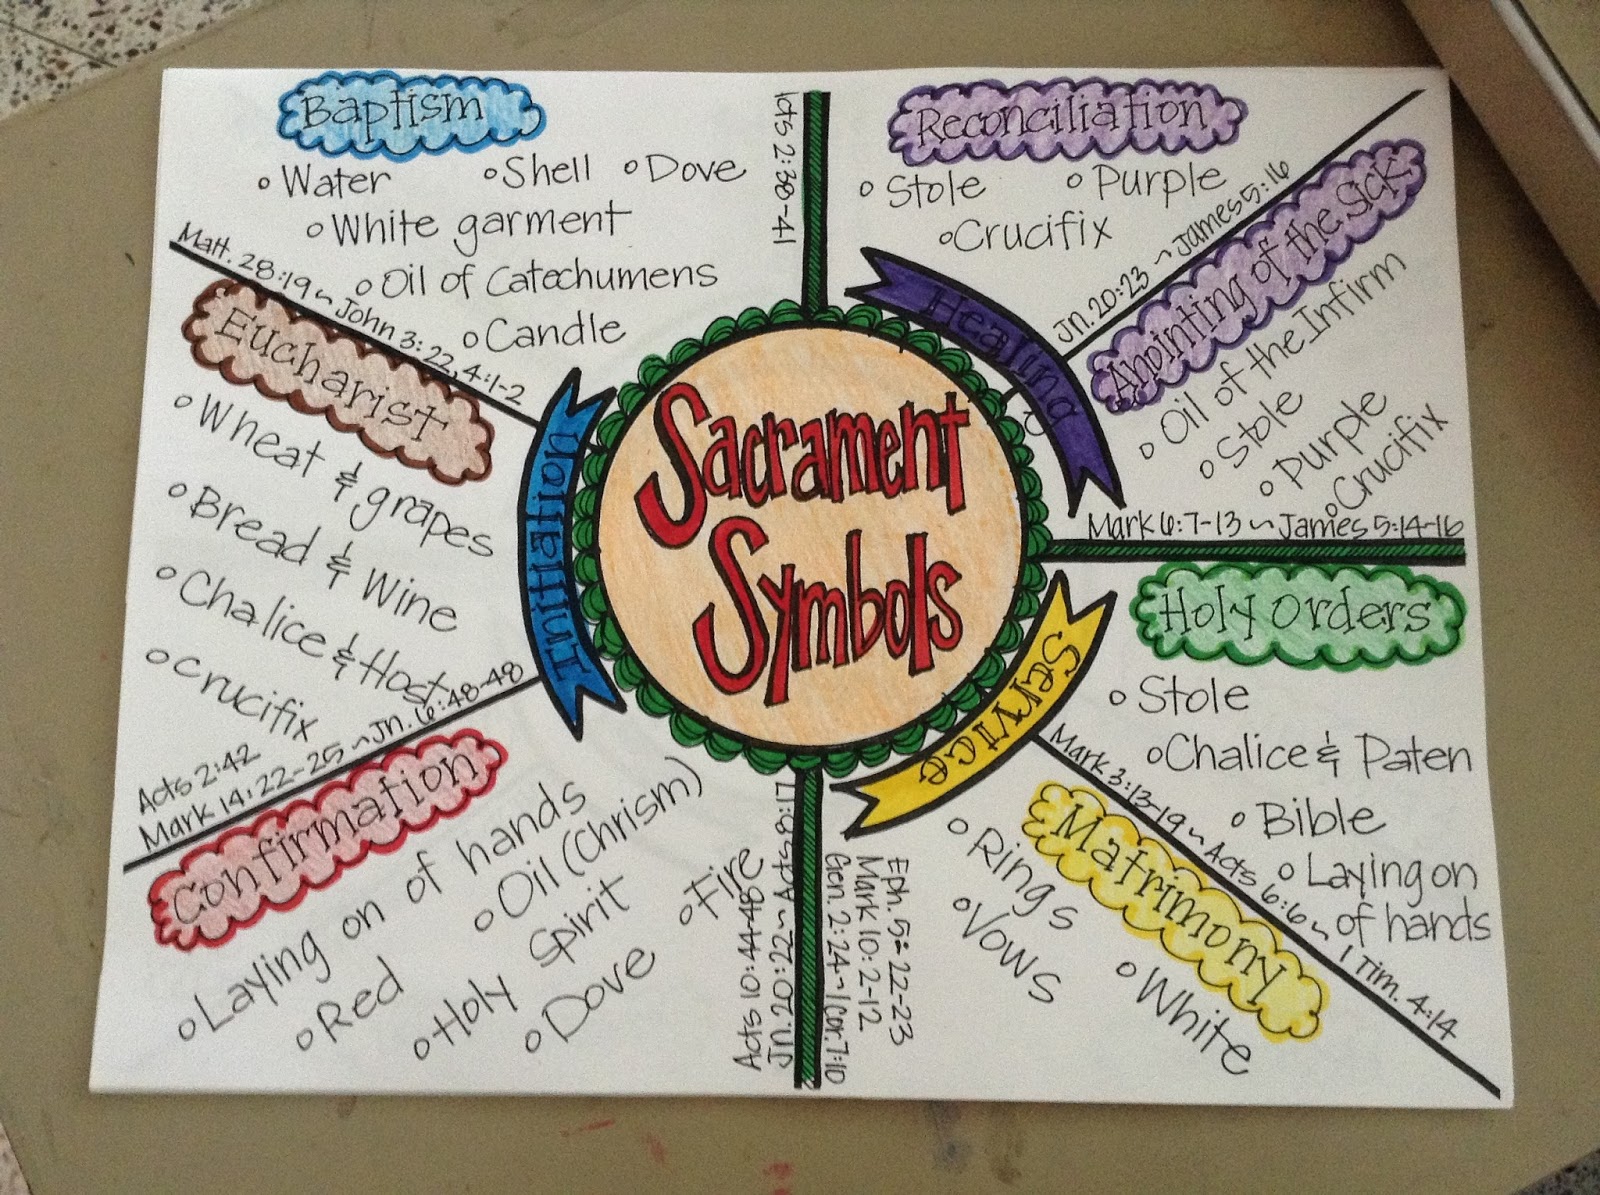 Sacrament
Symbols
Initiation
Baptism
Water
Shell
Dove
White garment
Oil of Catechumens
Candle
Acts 2:38-41
Matt. 28:19 ~ John 3:22, 4:1-2
Eucharist
Wheat & grapes
Bread & Wine
Chalice & Host
Crucifix
Acts 2:42
Mark 14:22-25 ~ Jn. 6:48-48
Confirmation
Laying on of hands
Oil (Chrism)
Red
Holy Spirit
Fire
Dove
Jn. 20:22 ~ Acts 8:17
Healing
Reconciliation
Stole
Purple
Crucifix
Jn. 20:23 ~ James 5:16
Anointing of the Sick
Oil of the Infirm
Stole
Purple
Crucifix
Mark 6:7-13 ~ James 5:14-16
Service
Holy Orders
Stole
Chalice & Paten
Bible
Laying on
of hands
Mark 3:13-19 ~ Acts 6:6 ~ 1 Tim. 4:14
Matrimony
Rings
Vows
White
Eph. 5:22-23
Mark 10:2-12
Gen. 2:24 ~ 1 Cor. 7:10